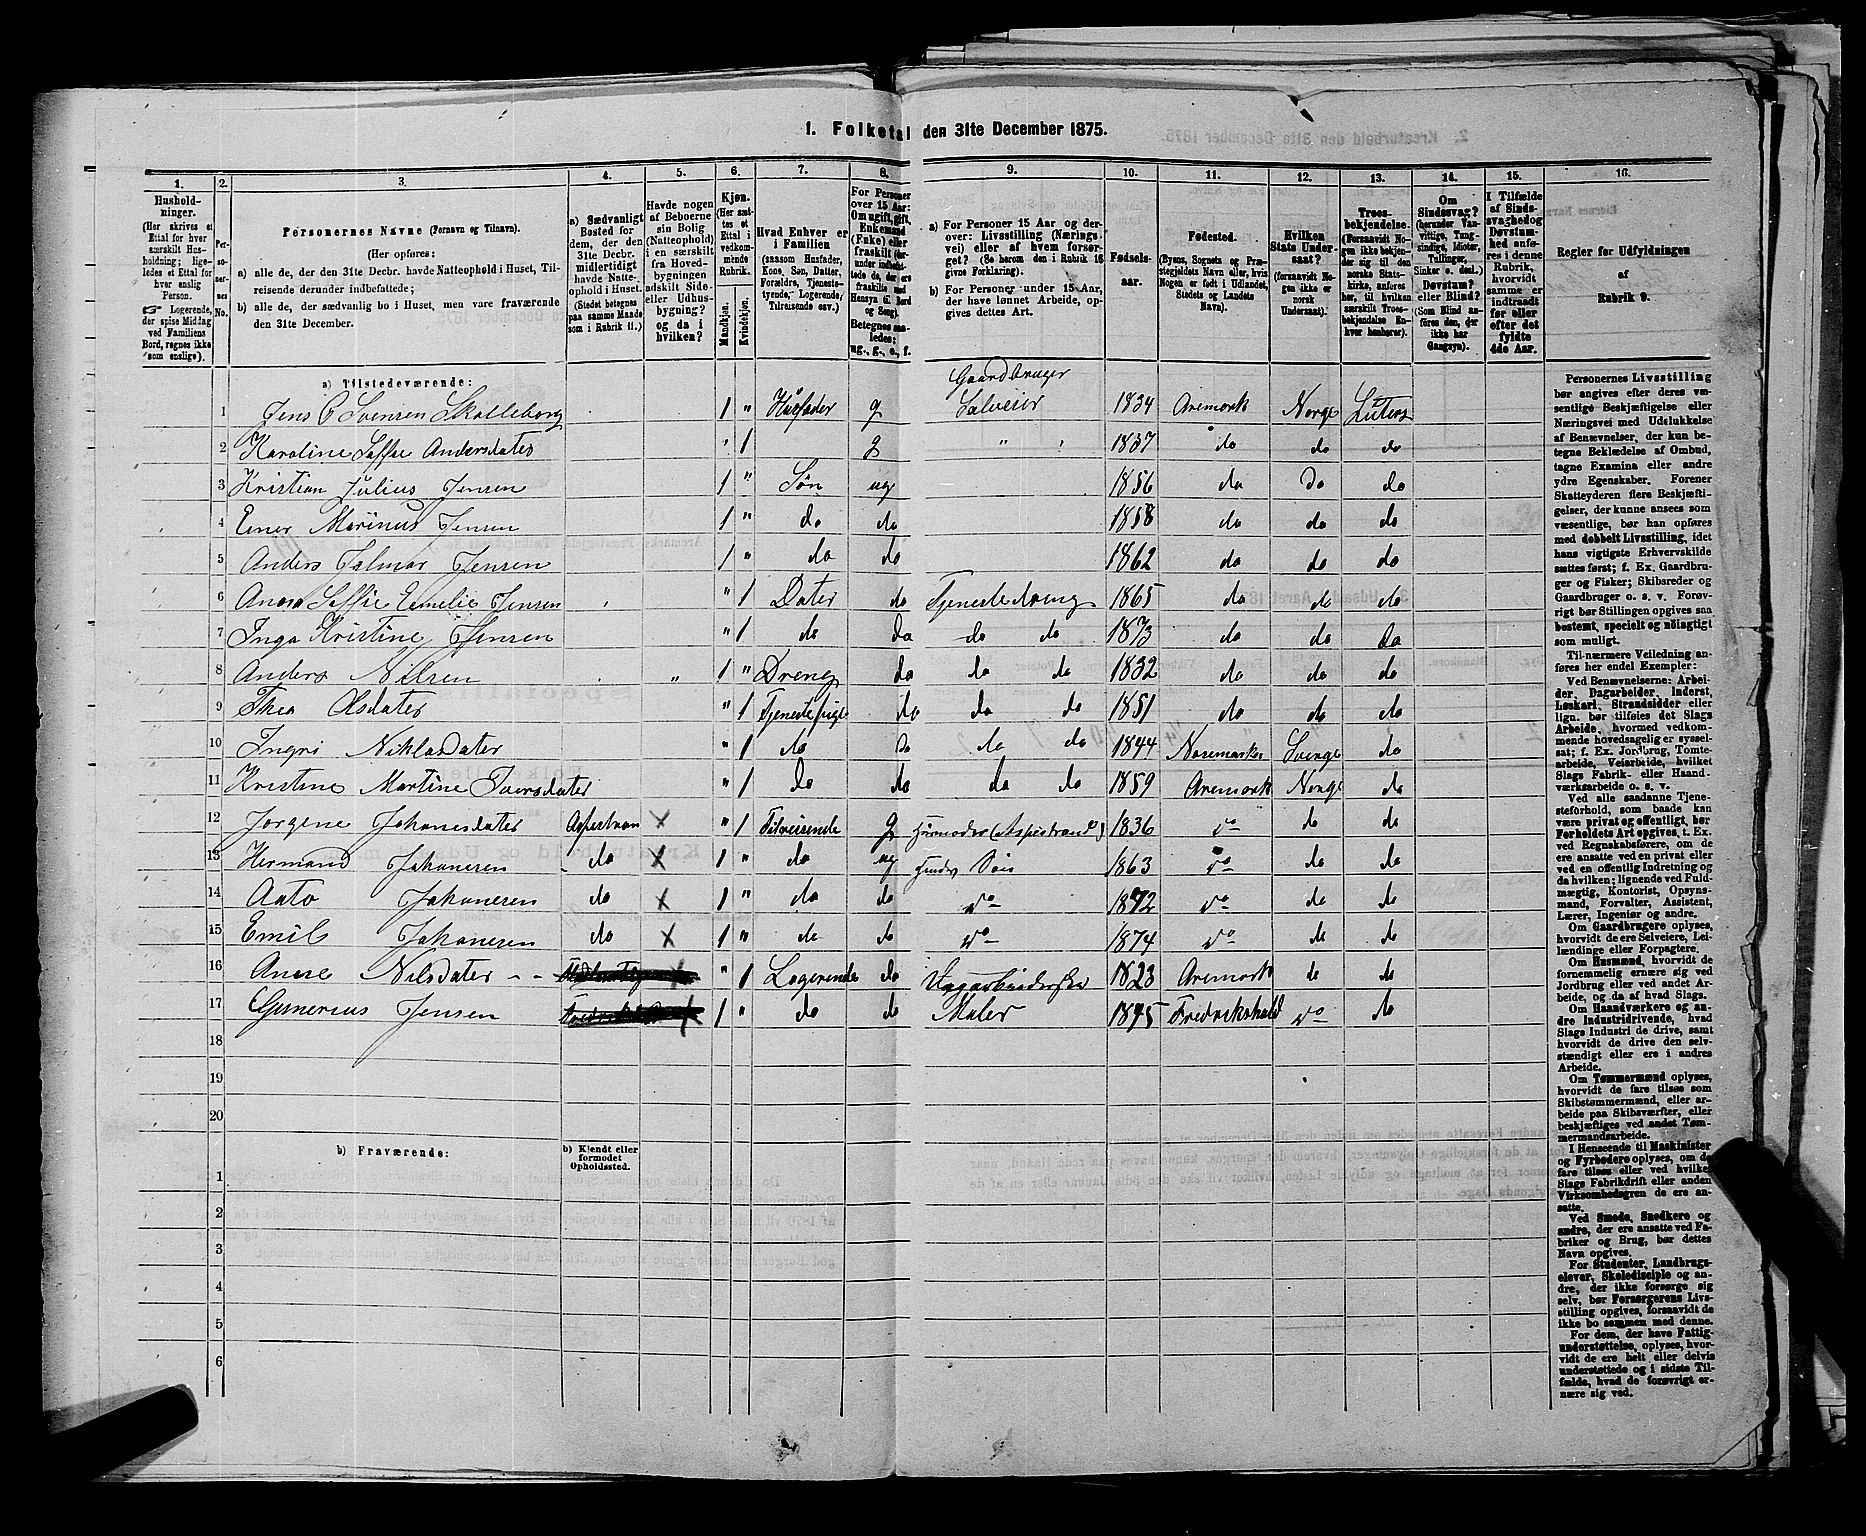 1. Folketal den 31te December 1875.
1. 2. 3. 4. 5. 6. 7. 8. 9. 10. 11. 12. 13. 14. 15. 16.
Husholdninger.
(Her skrives et Ettal for hver særskilt Husholdning; ligeledes et Ettal for hver enslig Person.
☞ Logerende, der spise Middag ved Familiens Bord, regnes ikke som enslige).
Personernes No.
Personernes Navne (Fornavn og Tilnavn).
(Her opføres:
a) alle de, der den 31te Decbr. havde Natteophold i Huset, Tilreisende derunder indbefattede;
b) alle de, der sædvanlig bo i Huset, men vare fraværende den 31te December.
a) Sædvanligt Bosted for dem, der den 31te Decbr. midlertidigt havde Natteophold i Huset.
(Stedet betegnes paa samme Maade som i Rubrik 11.)
Havde nogen af Beboerne sin Bolig (Natteophold) i en særskilt fra Hovedbygningen adskilt Side- eller Udhusbygning? og da i hvilken?
Kjøn.
(Her sættes et Ettal i vedkommende Rubrik.
Mandkjøn.
Kvindekjøn.
Hvad Enhver er i Familien
(saasom Husfader, Kone, Søn, Datter, Forældre, Tjenestetyende, Logerende, Tilreisende osv.)
For Personer over 15 Aar: Om ugift, gift, Enkemand (Enke) eller fraskilt
Betegnes saaledes: ug., g., e., f.
a) For Personer 15 Aar og derover: Livsstilling (Næringsvei) eller af hvem forsørget? (Se herom den i Rubrik 16 givne Forklaring).
b) For Personer under 15 Aar, der have lønnet Arbeide, opgives dettes Art.
Fødselsaar.
Fødested.
(Byens, Sognets og Præstegjeldets Navn eller, hvis Nogen er født i Udlandet, Stedets og Landets Navn).
Hvilken Stats Undersaat?
(forsaavidt Nogen ikke er norsk Undersaat).
Troesbekjendelse.
(Forsaavidt Nogen ikke bekjender sig til den norske Statskirke, anføres her, til hvilken særskilt Troesbekjendelse Enhver henhører).
Om Sindssvag? (herunder Vanvittige, Tungsindige, Idioter, Tullinger, Sinker o. desl.) Døvstum? eller Blind?
(Som Blind anføres den, der ikke har Gangsyn).
I Tilfælde af Sindssvaghed og Døvstumhed anføres i denne Rubrik, hvorvidt samme er indtraadt før eller efter det fyldte 4de Aar.
Regler for Udfyldningen af Rubrik 9.
a) Tilstedeværende:
Gaardbruger
1 Jens O Svensen Skolleborg 1 " Husfader g Selveier 1834 Aremark Norge Luters
2 Karoline Soffie Andersdater " 1 g " 1837 do do do
3 Kristian Julius Jensen 1 " Søn ug 1856 do Do do
4 Einer Marinus Jensen 1 " do do 1858 do do do
5 Anders Jalmar Jensen 1 " do do 1862 do do do
6 Anna Soffie Emelie Jensen " 1 Dater do Tjenestedreng 1865 do do do
7 Inga Kristine Jensen " 1 do do do do 1873 do do do
8 Anders Nilsen " 1 " Dreng do do do 1832 do do do
9 Thea Olsdater " 1 Tjenestepige do do do 1851 do do do
10 Ingri Niklasdater " 1 do do do do 1844 Svenge do
11 Kristine Martine Iversdater " 1 do do do do 1859 Aremark Norge do
12 Jørgene Johanesdater × " 1 Tilreisende g Husmoder (Aspestrand) 1836 do do do
13 Hermand Johanesen do × 1 " do ug 1863 do do do
14 Johanesen do × 1 " do do do 1872 do do do
15 Emil Johanesen do × 1 " do do do 1874 do do do
16 Anne Nilsdater " 1 Logerende do 1823 Aremark do do
17 Gunerius Jensen 1 " do do Maler 1845 Fredrikshald do do
18
19
20
b) Fraværende:
b) Kjendt eller formodet Opholdssted.
1
2
3
4
5
6
Personernes Livsstilling bør angives efter deres væsentlige Beskjæftigelse eller Næringsvei med Udelukkelse af Benævnelser, der kun betegne Beklædelse af Ombud, tagne Examina eller andre ydre Egenskaber. Forener Skatteyderen flere Beskjæftigelser, der kunne ansees som væsentlige, bør han opføres med dobbelt Livsstilling, idet hans vigtigste Erhvervskilde sættes først; f. Ex. Gaardbruger og Fisker; Skibsreder og Gaardbruger o. s. v. Forøvrigt bør Stillingen opgives saa bestemt, specielt og nöiagtigt som muligt.
Til-nærmere Veiledning anføres her endel Exempler:
Ved Benævnelserne: Arbeider, Dagarbeider, Inderst, Løskarl, Strandsidder eller lign. bør tilføies det Slags Arbeide, hvormed vedkommende hovedsagelig er sysselsat; f. Ex. Jordbrug, Tomtearbeide, Veiarbeide, hvilket Slags Fabrik- eller Haandværksarbeide o. s. v.
Ved alle saadanne Tjenesteforhold, som baade kan være privat og offentligt, bør Forholdets Art opgives, t. Ex. ved Regnskabsførere, om de ere ansatte ved en privat eller ved en offentlig Indretning og da hvilken; lignende ved Fuldmægtig, Kontorist, Opsynsmand, Forvalter, Assistent, Lærer, Ingeniør og andre.
Om Gaardbrugere oplyses, hvorvidt de ere Selveiere, Leilændinge eller Forpagtere.
Om Husmænd, hvorvidt de fornemmelig ernære sig ved Jordbrug eller ved andet Arbeide, og da af hvad Slags.
Om Haandværkere og andre Industridrivende, hvad Slags Industri de drive, samt hvorvidt de drive den selvstændigt eller ere i andres Arbeide.
Om Tømmermænd oplyses, hvorvidt de fare tilsøs som Skibstømmermænd, eller arbeide paa Skibsværfter, eller beskjæftiges ved andet Tømmermandsarbeide.
I Henseende til Maskinister og Fyrbødere oplyses, om de fare tilsøs eller ved hvilket Slags Fabrikdrift eller anden Virksomhed de ere ansatte.
Ved Smede, Snedkere og andre, der ere ansatte ved Fabriker og Brug, bør dettes Navn opgives.
For Studenter, Landbrugselever, Skoledisciple og andre, der ikke forsørge sig selv, bør Forsørgerens Livsstilling opgives, forsaavidt de ikke bo sammen med denne.
For dem, der have Fattigunderstøttelse, oplyses, hvorvidt de ere helt eller delvis understøttede og i sidste Tilfælde, hvad de forøvrigt ernære sig ved.